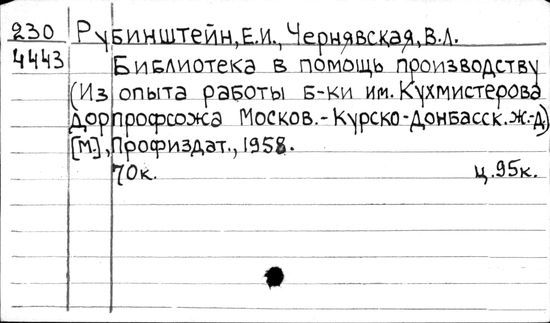 230 Рубинштейн, Е.И., Чернявская, В.Л.
4443 Библиотека в помощь производству
(Из опыта работы б-ки им. Кухмистерова
Дорпрофсожа Москов.-Курско-Донбасск.ж.-д)
[М.], Профиздат., 1958.
70к. ц.95к.